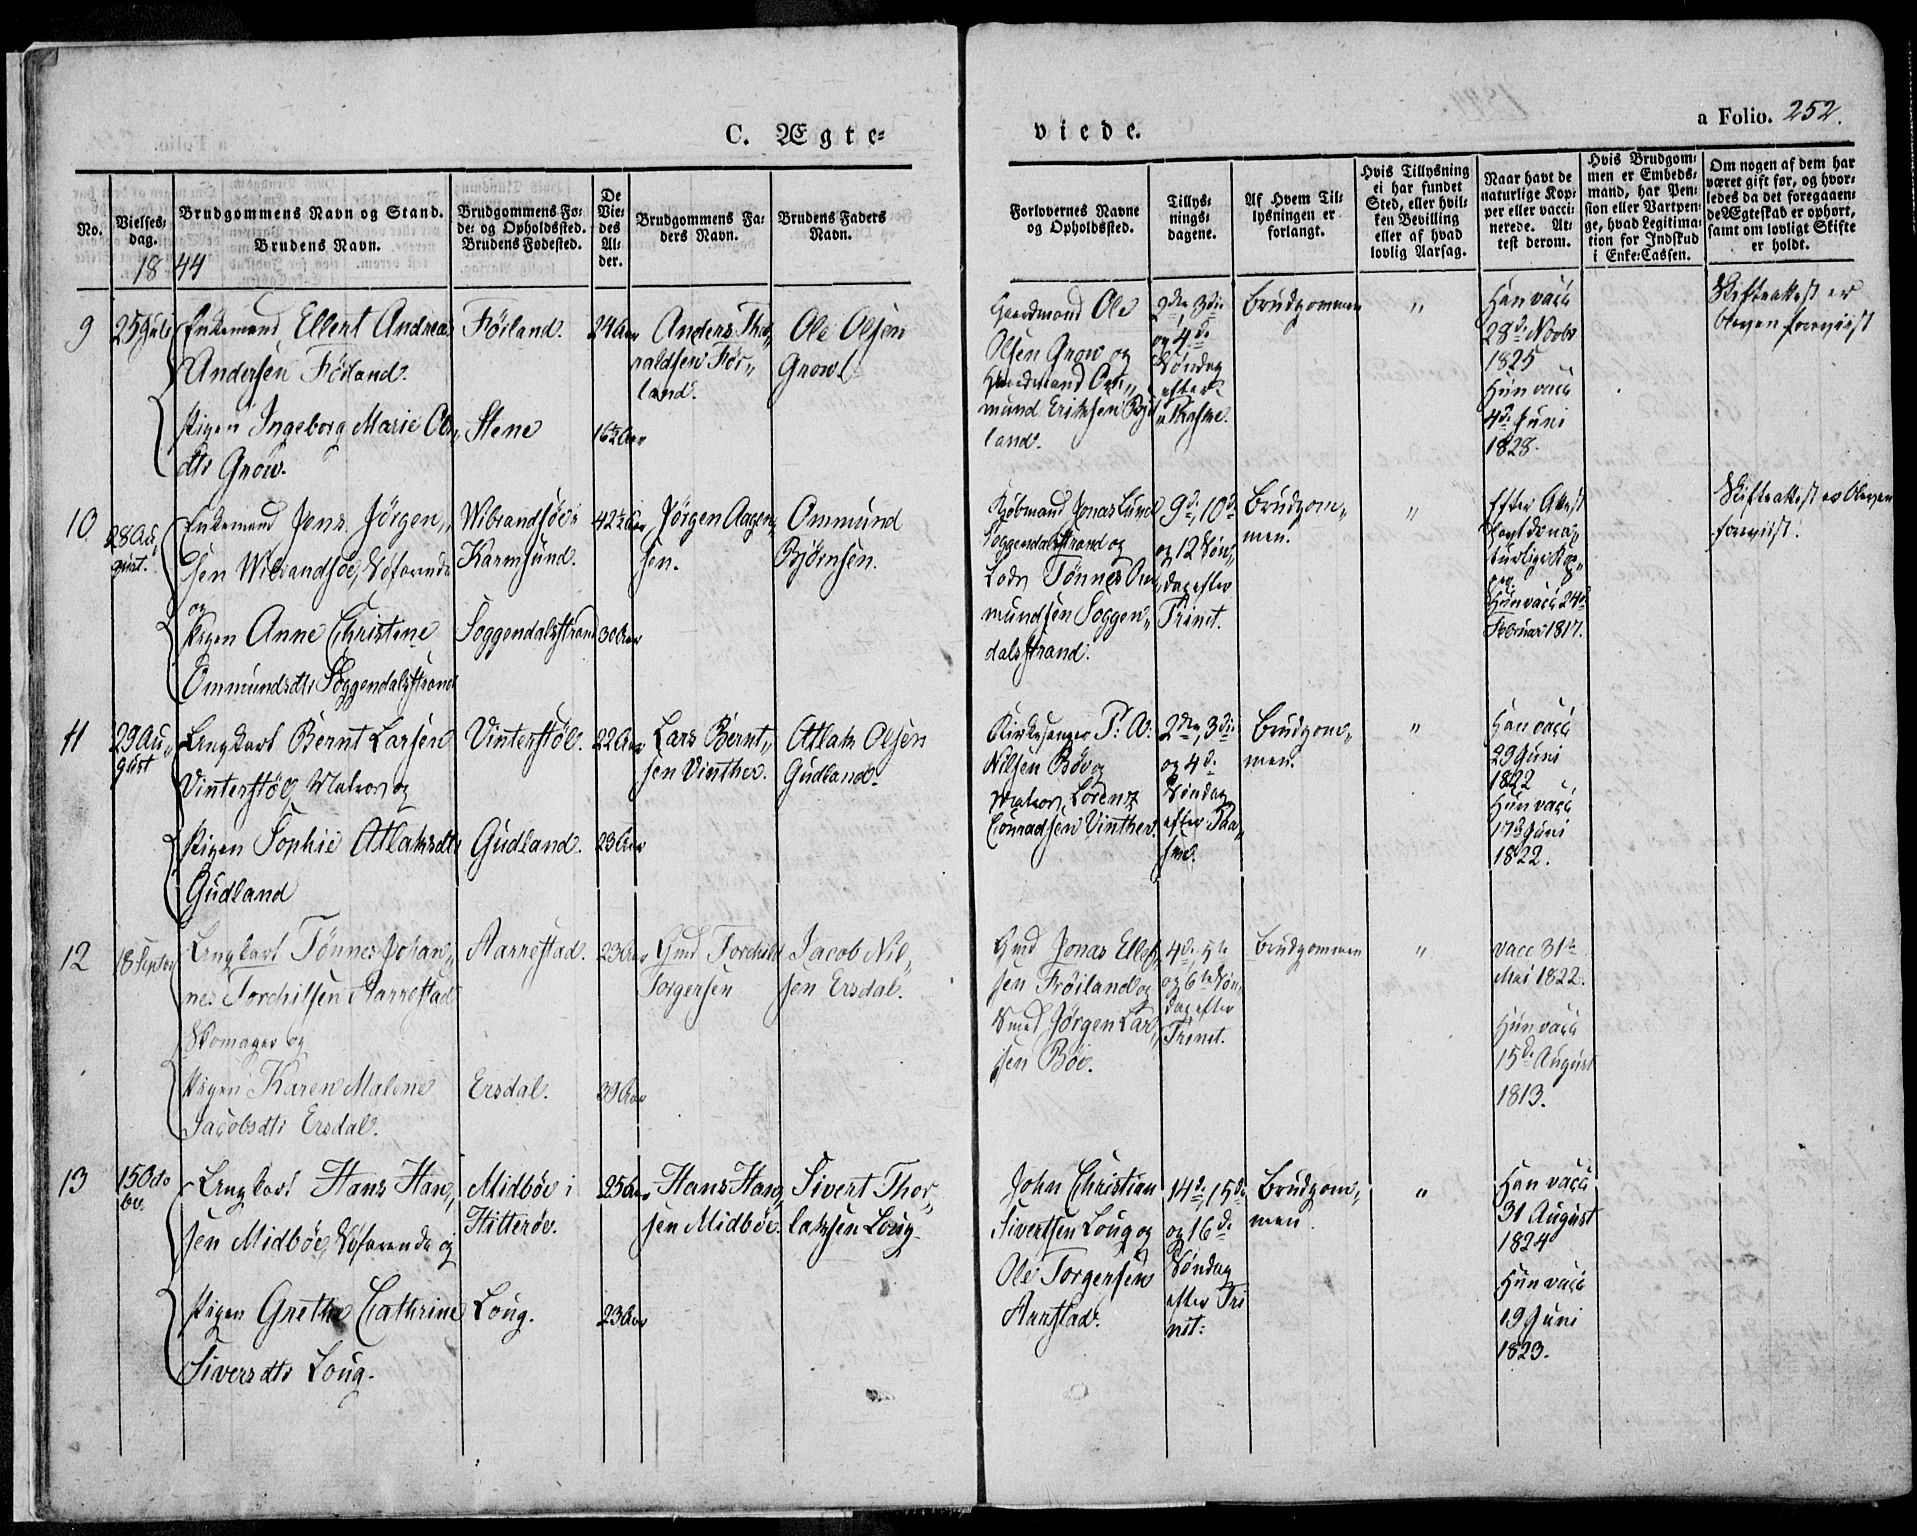 a Folio. 252.
C. Ægte-
viede.
No.
Vielses-
dag.
Brudgommens Navn og Stand.
Brudens Navn.
Brudgommens Fø-
de- og Opholdssted.
Brudens Fødested.
De
Vie-
des
Al-
der.
Brudgommens Fa-
ders Navn.
Brudens Faders
Navn.
Forlovernes Navne
og Opholdssted.
Tillys-
nings-
dagene.
Af Hvem Til-
lysningen er
forlangt.
Hvis Tillysning
ei har fundet
Sted, eller hvil-
ken Bevilling
eller af hvad
lovlig Aarsag.
Naar havt de
naturlige Kop-
per eller vacci-
nerede. At-
test derom.
Hvis Brudgom-
men er Embeds-
mand, har Pen-
sion eller Vartpen-
ge, hvad Legitima-
tion for Indskud
i Enke-Cassen.
Om nogen af dem har
været gift før, og hvor-
ledes da det foregaaen-
de Ægteskab er ophørt,
samt om lovligt Skifte
er holdt.
1844
9
25 Juli
Enkemand Ellert Andreas
Andersen Føiland.
Pigen Ingeborg Marie Ols„
dtr Grow.
Føiland.
Stene
24 Aar
16½ Aar
Anders Tho„
raldsen Før„
land.
Ole Olsen
Grow
Gaardmand Ole
Olsen Grow og
Gaardmand Om„
mund Eriksen
land.
2den, 3die
og 4de
Søndag
efter
Paaske.
Brudgommen
"
Han vacc
28de Novbr
1825
Hun vacc
4de Juni
1828.
Skifteattest er
bleven foreviist
10
28 Au„
gust.
Enkemand Jens Jørgen„
sen Wibrandsøe, Søfarende
og
Pigen Anne Christine
Ommundsdtr Soggendalsstrand
Wibrandsøe i
Karmsund.
Soggendalsstrand
42½ Aar
30 Aar
Jørgen Aagen„
sen.
Ommund
Bjørnsen.
Kjøbmand Jonas Lund
Soggendalsstrand og
Lods Tønnes Om„
mundsen Soggen„
dalsstrand.
9de, 10de
og 12 Søn„
dag efter
Trinit.
Brudgom„
men.
"
Efter Attest
havt de na„
turlige Kop„
per
Hun vacc 24de
Februar 1817.
Skifteattest er bleven
foreviist.
11
29 Au„
gust
Ungkarl Bernt Larsen
Vinterstøl, Matros og
Pigen Sophie Atlaksdtr
Gudland
Vinterstøl.
Gudland.
22 Aar
23 Aar
Lars Bernt„
sen Vinther.
Atlak Olsen
Gudland.
Kirkesanger P: W:
Nilsen Bøe og
Matros Lorentz
Conradsen Vinther.
2den, 3die
og 4de
Søndag
efter Paa„
ske.
Brudgom„
men.
"
Han vacc
29 Juni
1822
Hun vacc
17de Juni
1822.
12
18 Septbr
Ungkarl Tønnes Johan„
nes Torchilsen Aarrestad
Skomager og
Pigen Karen Malene
Jacobsdtr Ersdal.
Aarrestad.
Ersdal.
23 Aar
39 Aar
Gmd Torchild
Torgersen
Jacob Nil„
sen Ersdal.
Gmd Jonas Ellef„
sen Frøiland og
Smed Jørgen Lar„
sen Bøe.
4de, 5te
og 6te Søn„
dag efter
Trinit.
Brudgommen
"
vacc 31te
Mai 1822.
Hun vacc
15de August
1813.
13
15 Octo
br.
Ungkarl Hans Han„
sen Midbøe, Søfarende og
Pigen Grethe Cathrine
Siversdtr Loug.
Midbøe i
Hitterøe.
Loug.
25 Aar
23 Aar
Hans Han„
sen Midbøe.
Sivert Thor„
laksen Loug.
John Christian
Sivertsen Loug og
Ole Torgersen
Aarstad.
14de, 15de
og 16de
Søndag
efter Tri
nit:
Brudgom„
men.
"
Han vacc
31 August
1824
Hun vacc
19 Juni
1823.